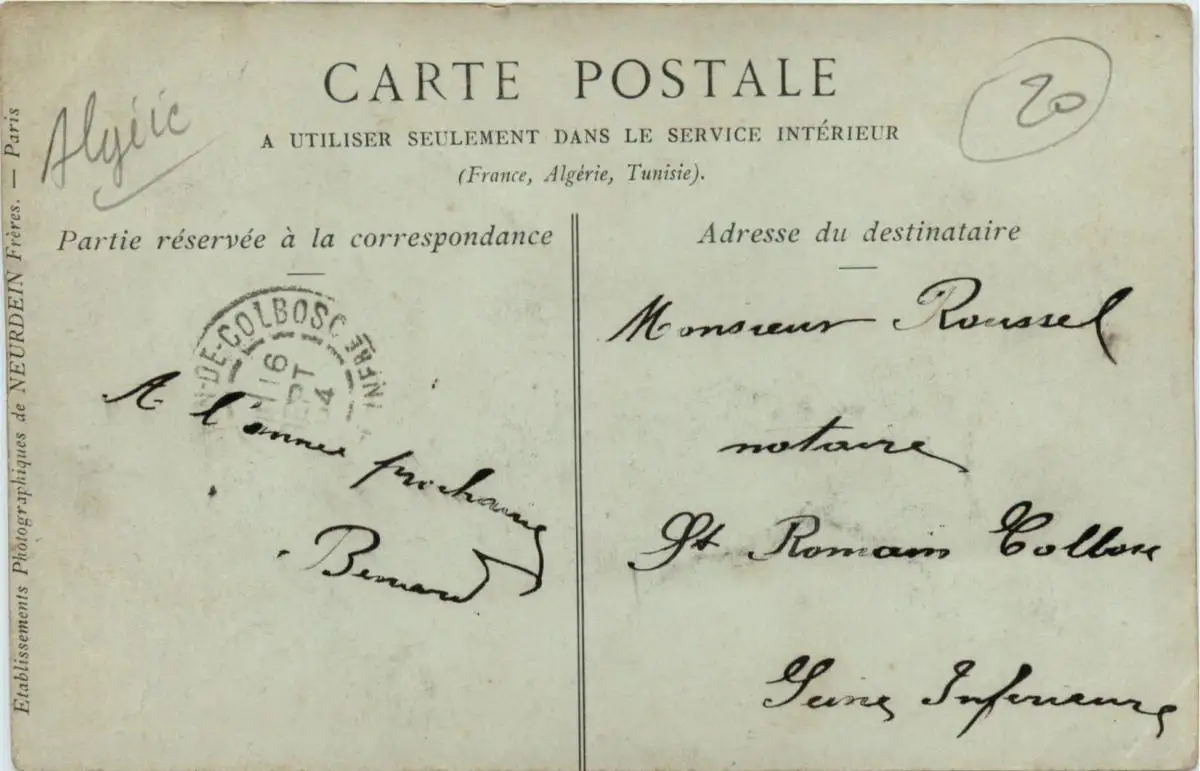 CARTE POSTALE
A UTILISER SEULEMENT DANS LE SERVICE INTÉRIEUR
(France, Algérie, Tunisie).
Algérie
20
Etablissements Photographiques de NEURDEIN Frères. — Paris
Partie réservée à la correspondance
N-DE-COLBOSC INFRE
16
PT
4
A l'année prochaine
Bernard
Adresse du destinataire
Monsieur Roussel
notaire
St Romain Colbosc
Seine Inferieure